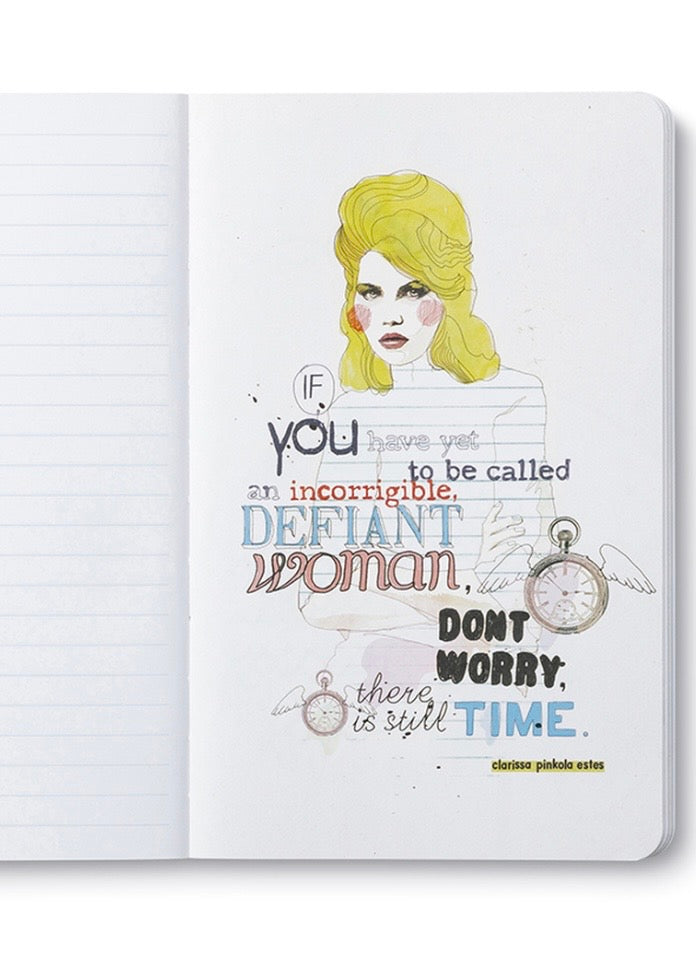 IF
YOU have yet
to be called
an incorrigible,
DEFIANT
woman,
DONT
WORRY,
there
is still TIME.
clarissa pinkola estes